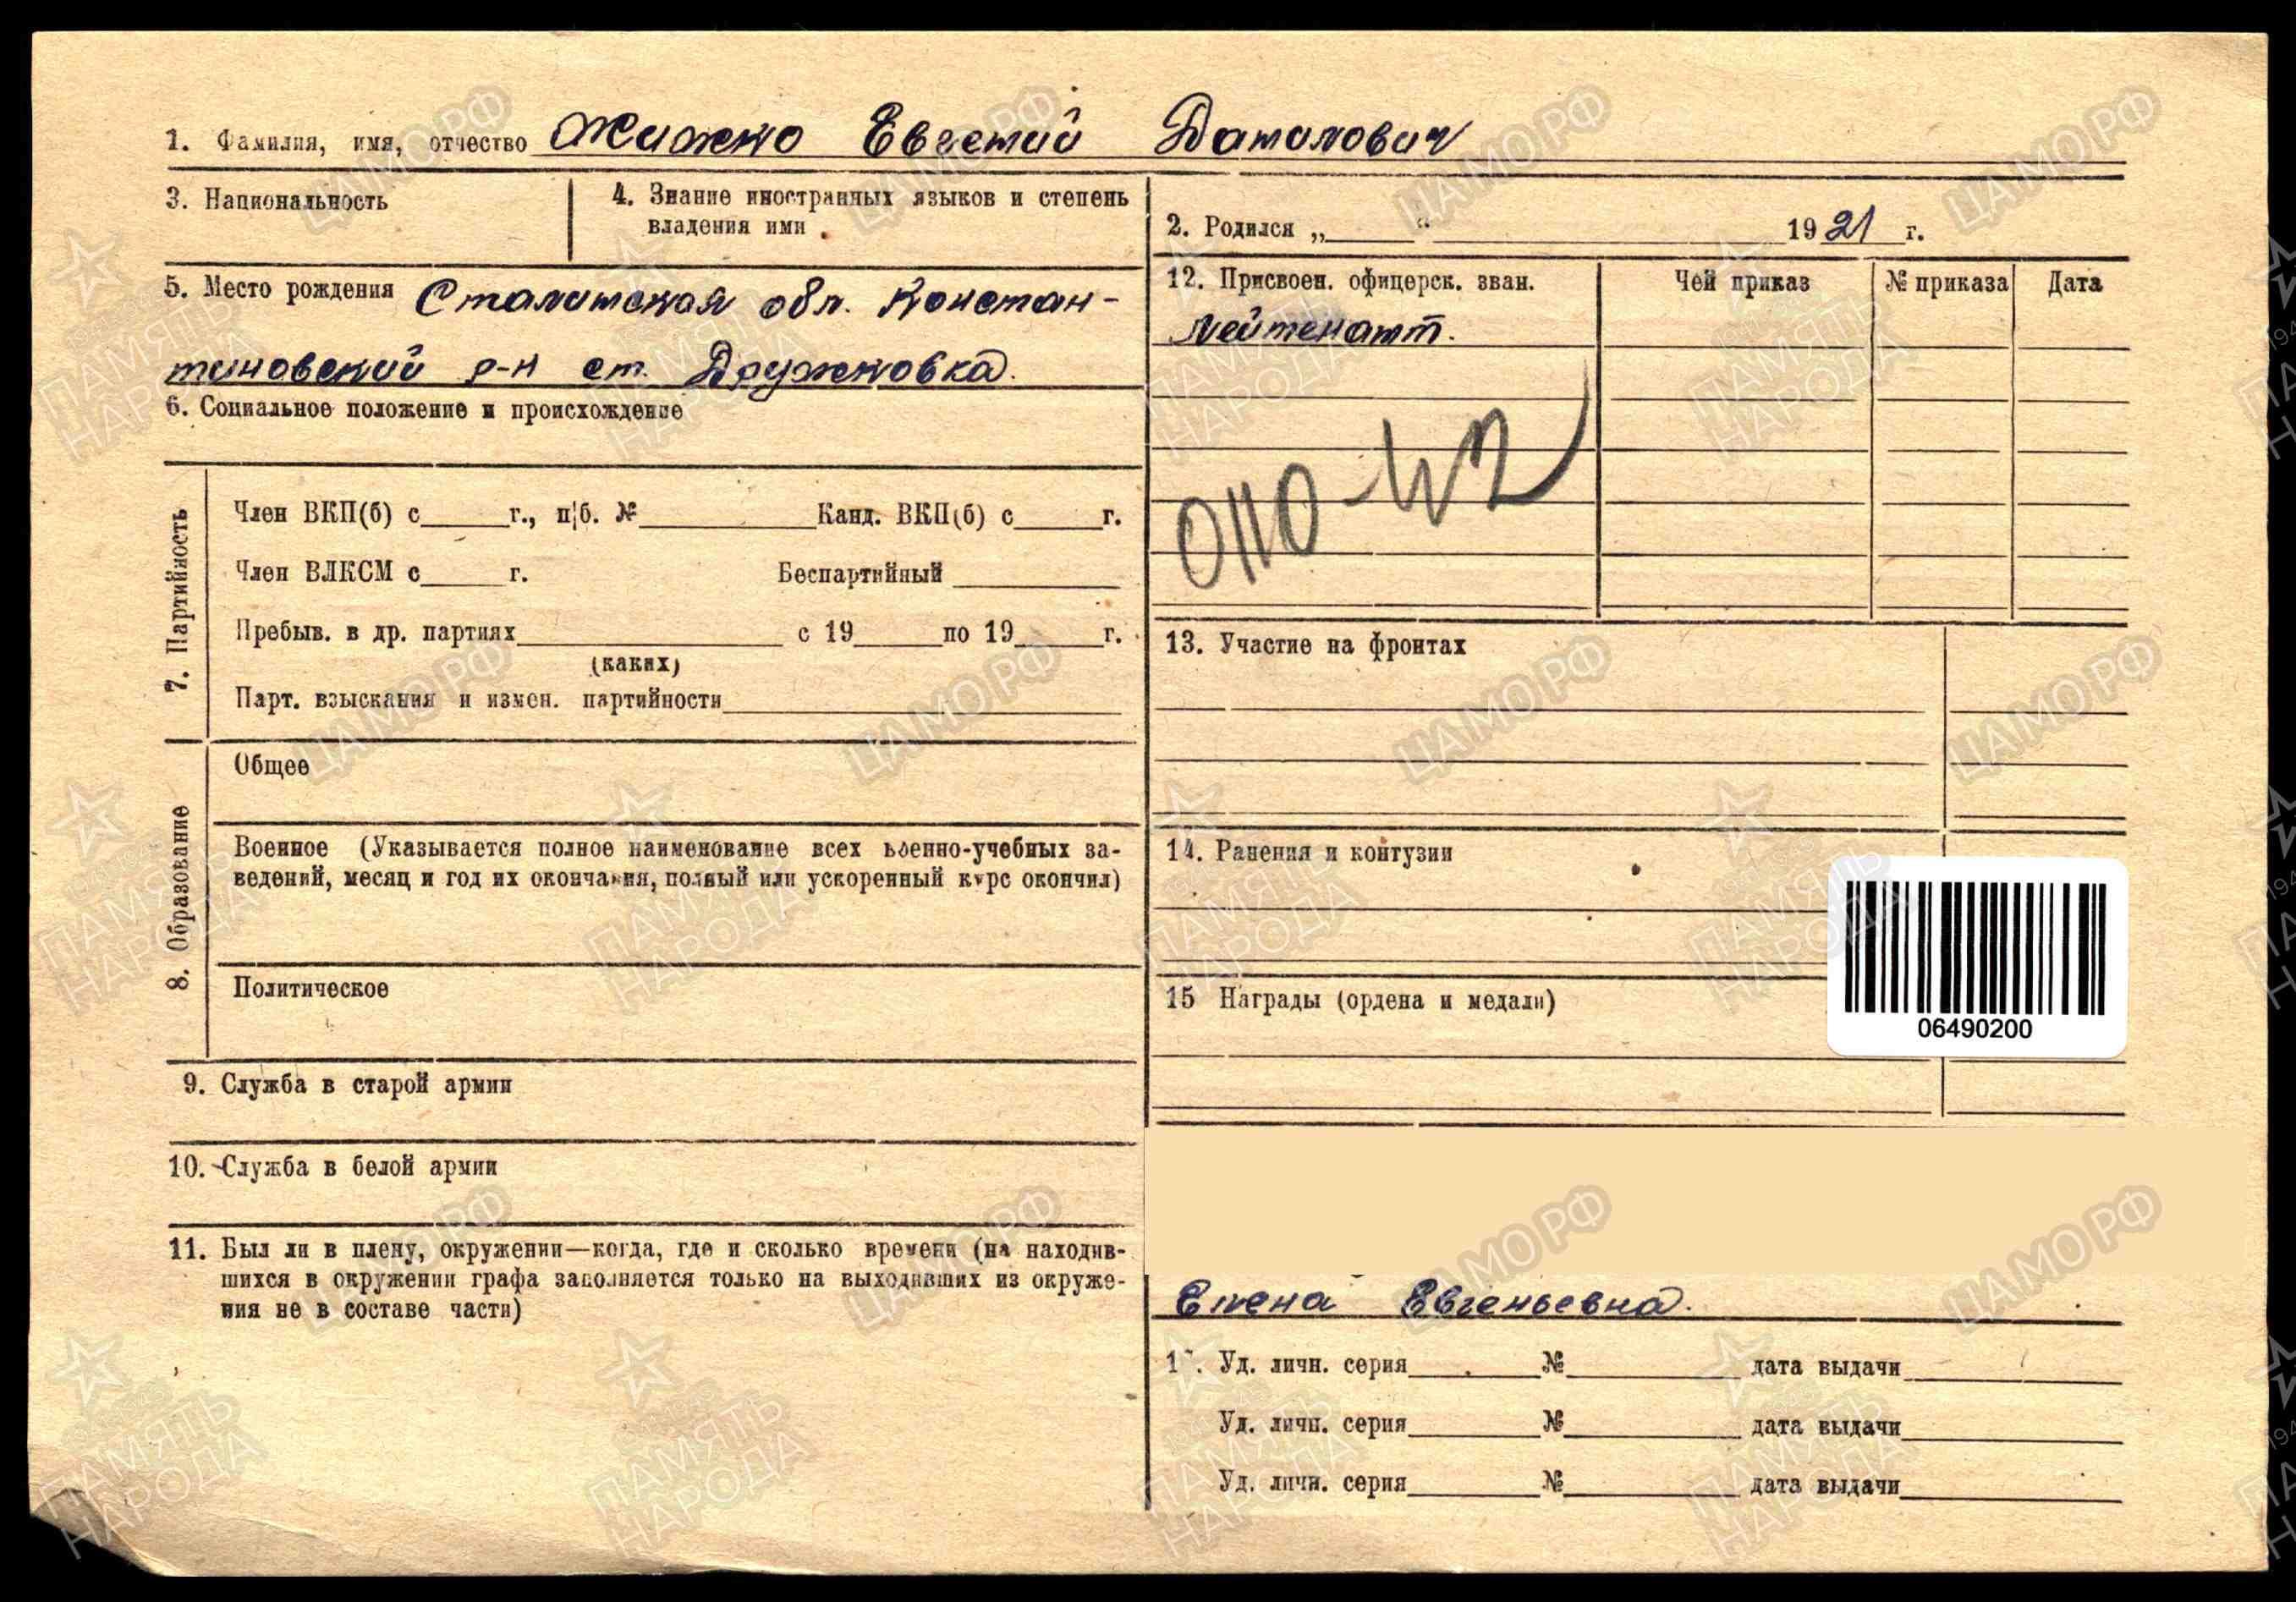 1. Фамилия, имя, отчество Жижко Евгений Данилович
3. Национальность
4. Знание иностранных языков и степень
владения ими
2. Родился „ “ 1921 г.
5. Место рождения Сталинская обл. Констан-
тиновский р-н ст. Дружковка.
6. Социальное положение и происхождение
12. Присвоен. офицерск. зван. Чей приказ № приказа Дата
Лейтенант.
0110-42
7. Партийность
Член ВКП(б) с г., п/б. № Канд. ВКП(б) с г.
Член ВЛКСМ с г. Беспартийный
Пребыв. в др. партиях с 19 по 19 г.
(каких)
Парт. взыскания и измен. партийности
8. Образование
Общее
Военное (Указывается полное наименование всех военно-учебных за-
ведений, месяц и год их окончания, полный или ускоренный курс окончил)
Политическое
9. Служба в старой армии
10. Служба в белой армии
11. Был ли в плену, окружении—когда, где и сколько времени (на находив-
шихся в окружении графа заполняется только на выходивших из окруже-
ния не в составе части)
13. Участие на фронтах
14. Ранения и контузии
15 Награды (ордена и медали)
06490200
Елена Евгеньевна.
Уд. личн. серия № дата выдачи
Уд. личн. серия № дата выдачи
Уд. личн. серия № дата выдачи
ЦАМО.РФ
ПАМЯТЬ
НАРОДА